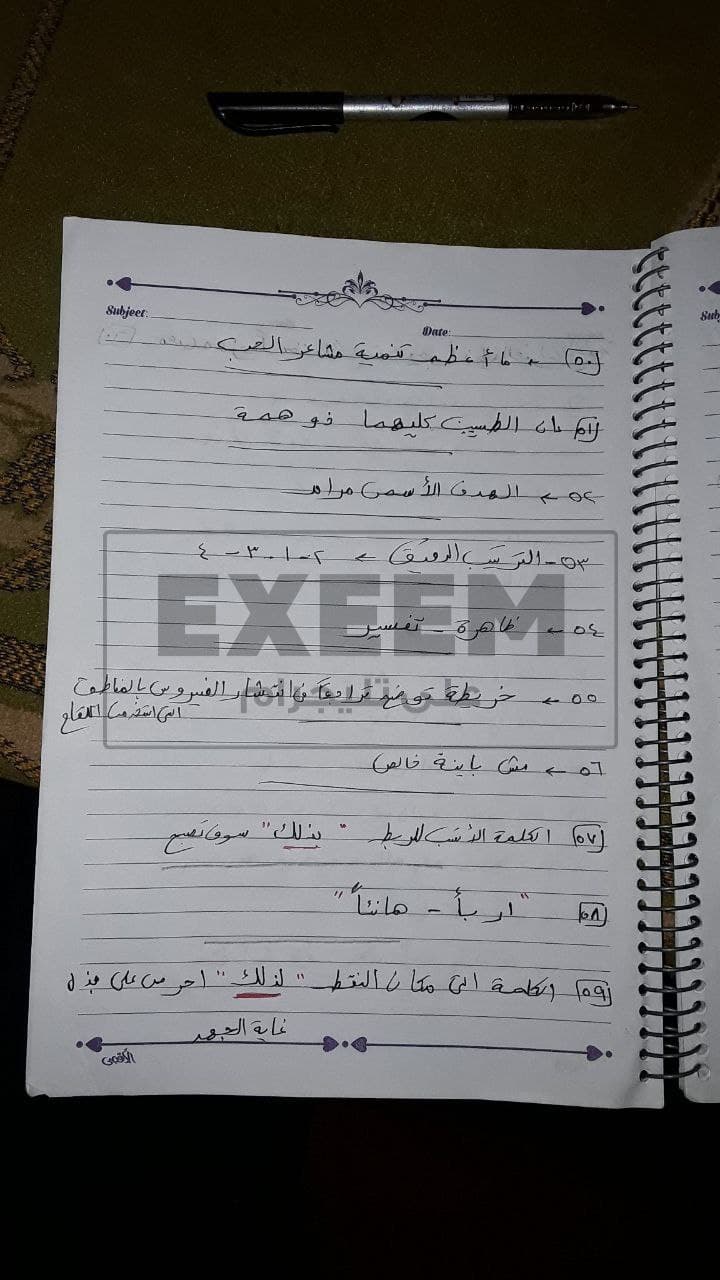 Subject:
Date:
٥٠ ← ما أعظم تنمية مشاعر الحب
٥١ بأن الطبيب كليهما ذو همة
٥٢ ← الهدف الأسمى مرادك
٥٣ - الترتيب الدقيق ← ٢-١-٣-٤
٥٤ ← ظاهرة - تفسير
٥٥ ← خريطة توضح تراجعاً في انتشار الفيروس بالمناطق
التى استخدمت اللقاح
٥٦ ← مش باينة خالص
٥٧ الكلمة الأنسب للربط "بذلك" سوف تصبح
٥٨ "اربأ - هانئاً"
٥٩ الكلمة التى مكان النقط "لذلك" احرص على بذل
غاية الجهد
EXEEM
على تليجرام